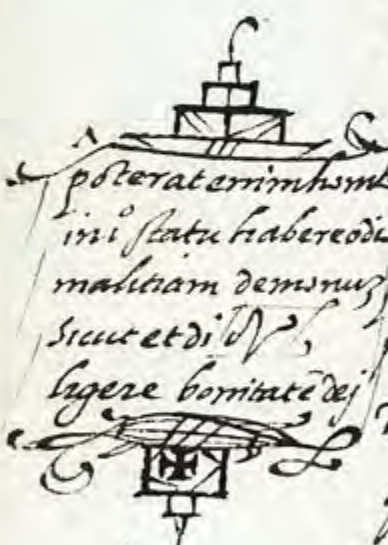 poterat enim hom
in i° statu habere odi
malitiam demonuȝ
sicut et di
ligere bonitatē dej